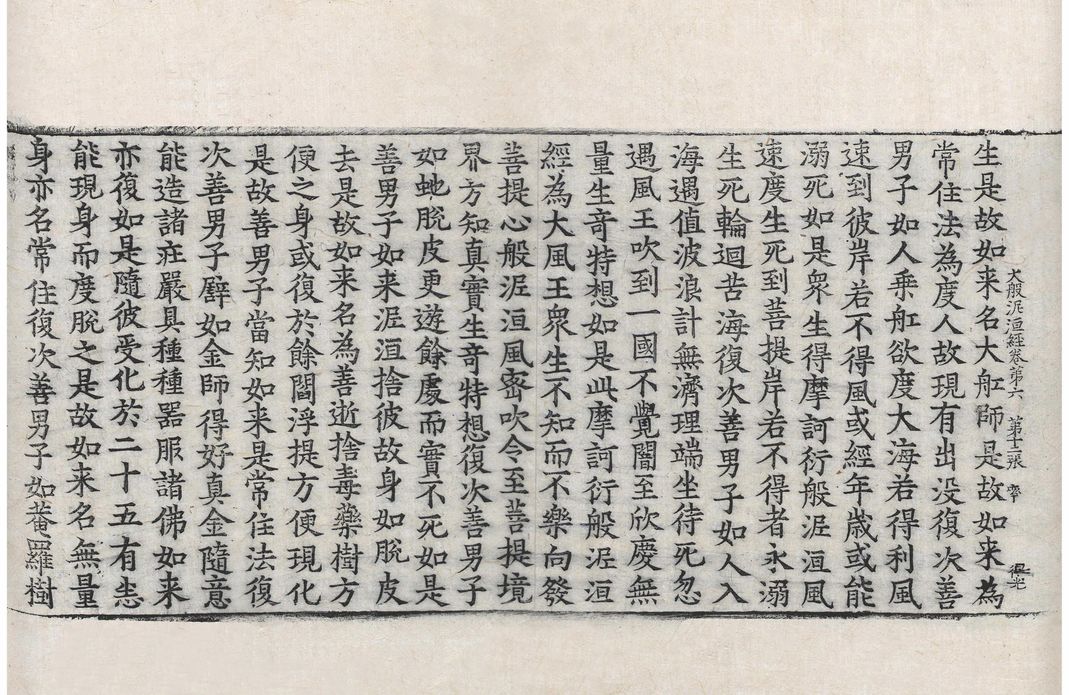 生是故如来名大舡師是故如来為
大般泥洹經卷第六　第十二張　𠫤
常住法為度人故現有出没復次善
男子如人乗舡欲度大海若得利風
速到彼岸若不得風或經年歳或能
溺死如是衆生得摩訶衍般泥洹風
速度生死到菩提岸若不得者永溺
生死輪迴苦海復次善男子如人入
海遇值波浪計無濟理端坐待死忽
遇風王吹到一國不覺闇至欣慶無
量生竒特想如是此摩訶衍般泥洹
經為大風王衆生不知而不樂向發
菩提心般泥洹風密吹令至菩提境
界方知真實生竒特想復次善男子
如虵脱皮更遊餘處而實不死如是
善男子如来泥洹捨彼故身如脱皮
去是故如来名為善逝捨毒藥樹方
便之身或復於餘閻浮提方便現化
是故善男子當知如来是常住法復
次善男子譬如金師得好真金隨意
能造諸莊嚴具種種器服諸佛如来
亦復如是隨彼受化於二十五有悉
能現身而度脱之是故如来名無量
身亦名常住復次善男子如菴羅樹